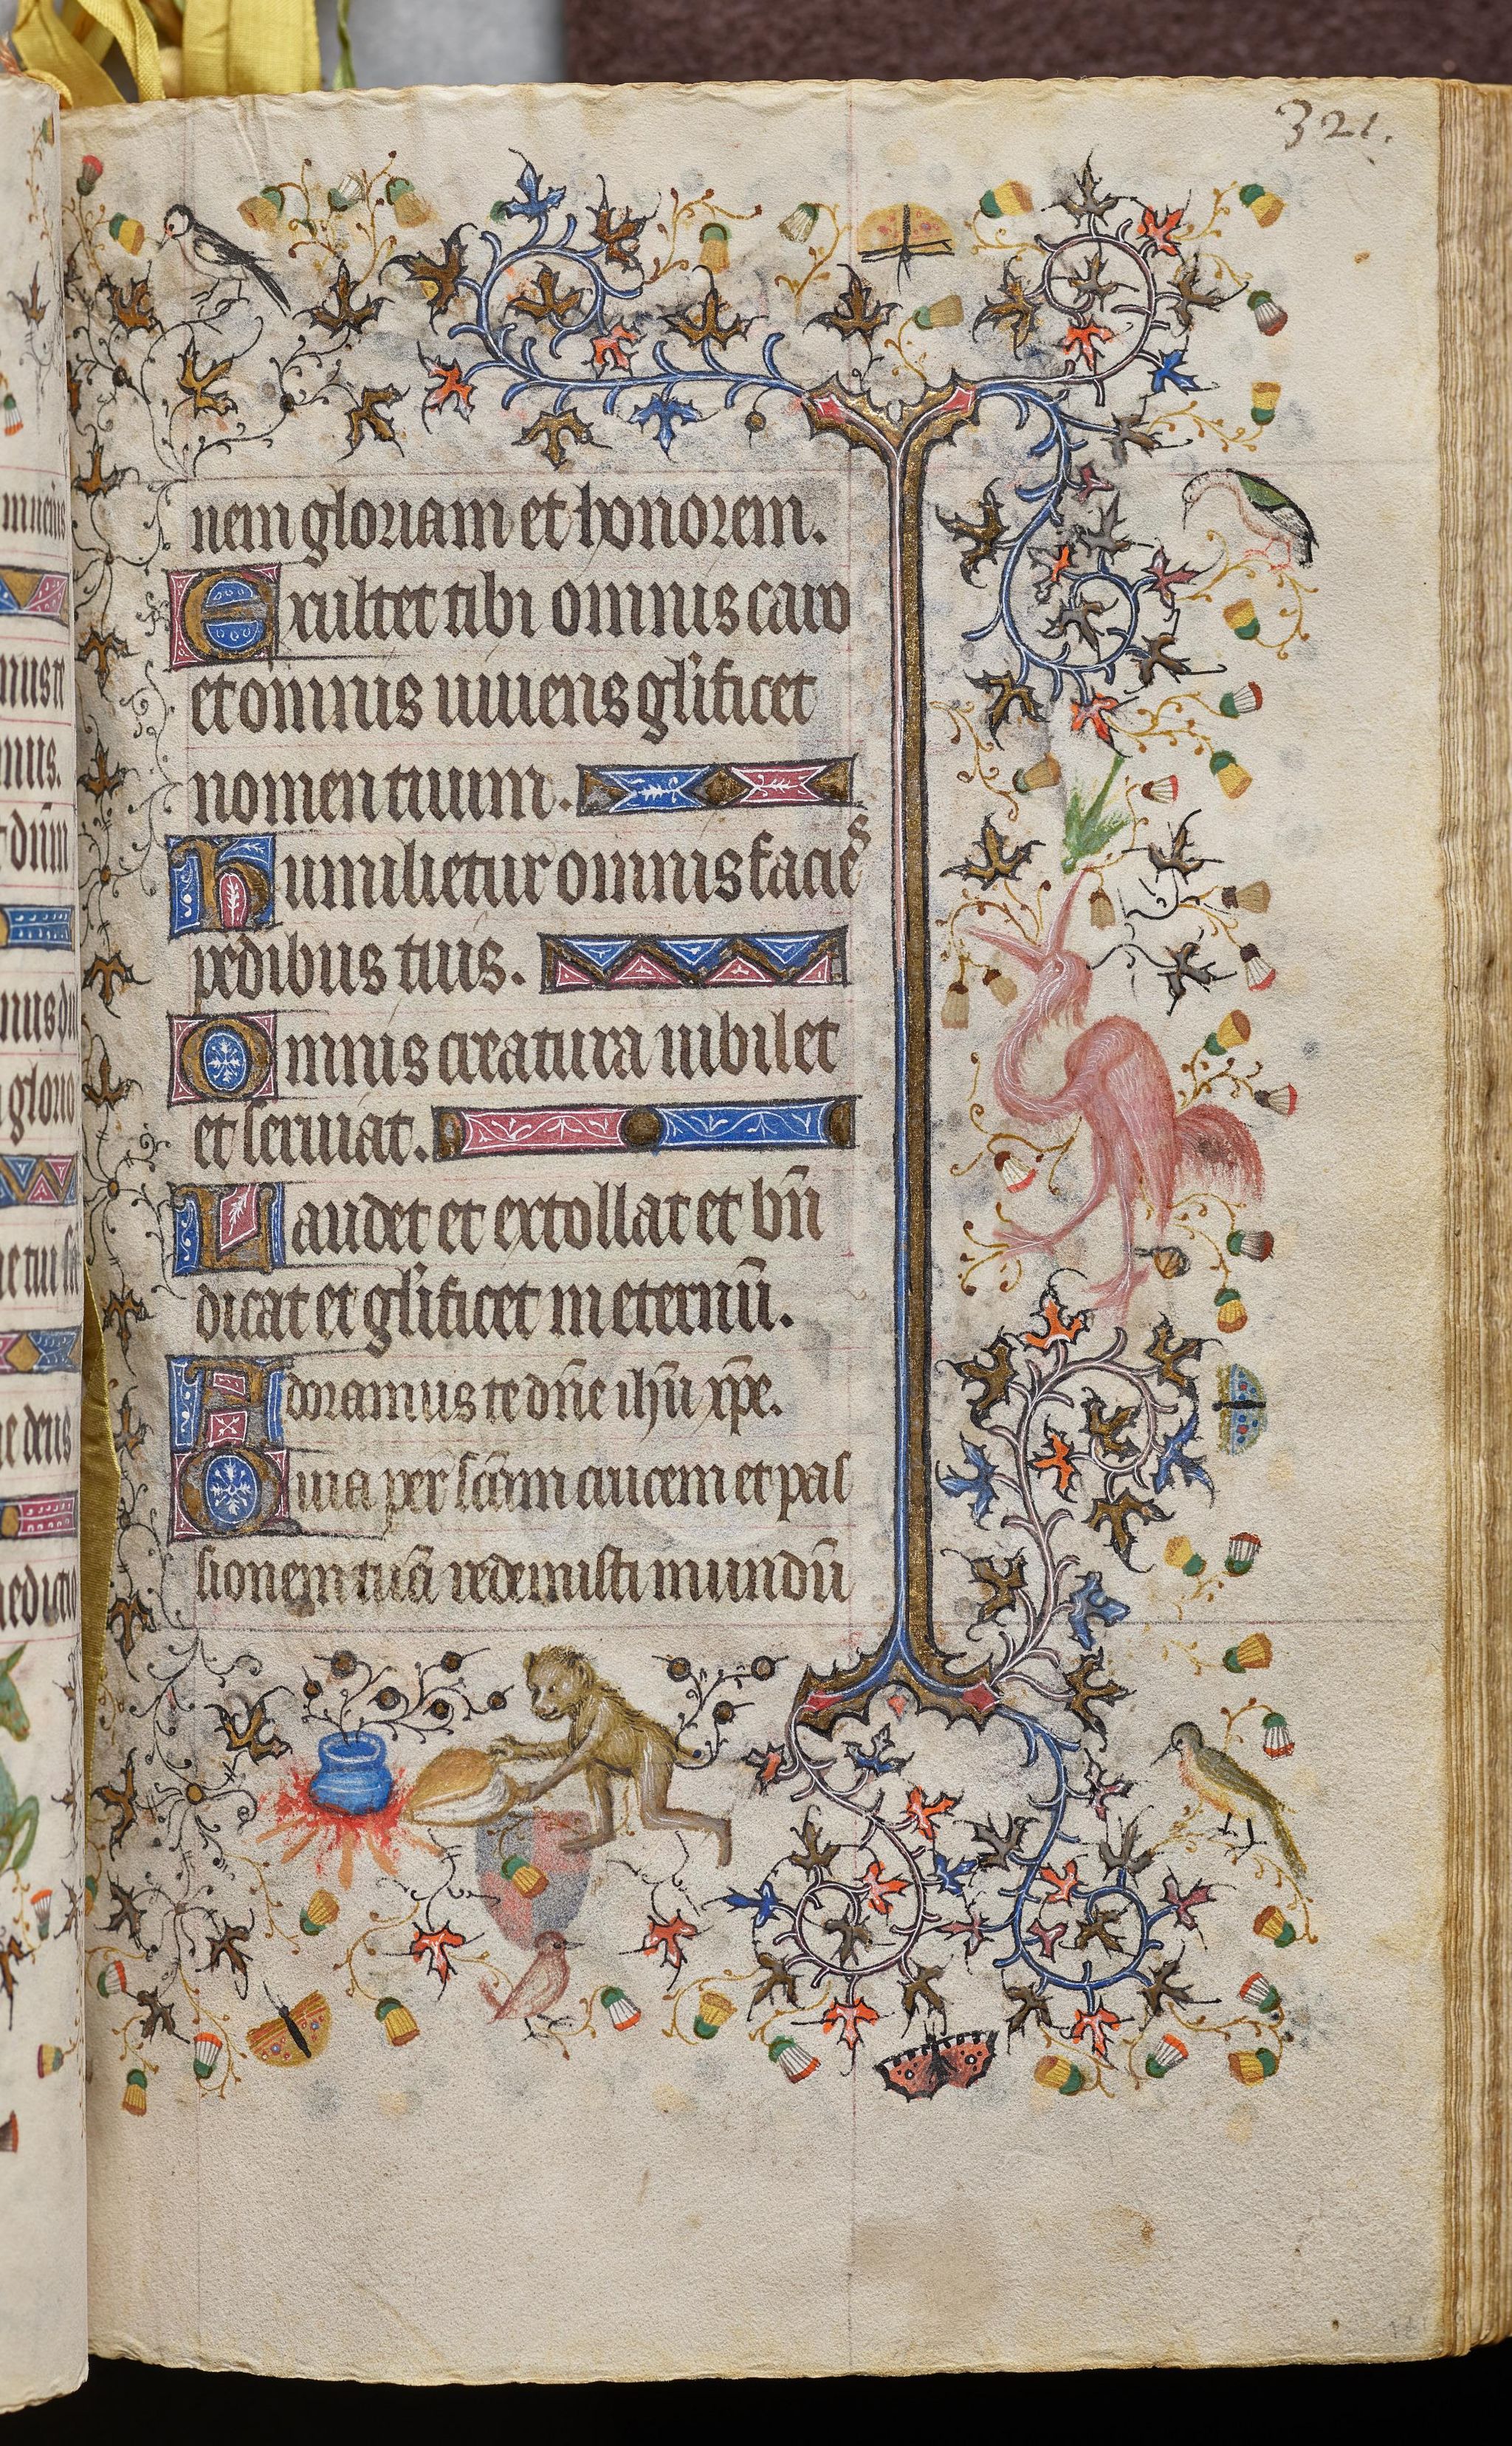 321.
nem gloriam et honorem.
Exultet tibi omnis caro
et omnis uiuens gl̄ificet
nomen tuum.
Humilietur omnis facies
pedibus tuis.
Omnis creatura iubilet
et seruiat.
Laudet et extollat et bn̄
dicat et gl̄ificet in eternū.
Adoramus te dn̄e ihū xp̄e.
Quia per sc̄am crucem et pas
sionem tuā redemisti mundū